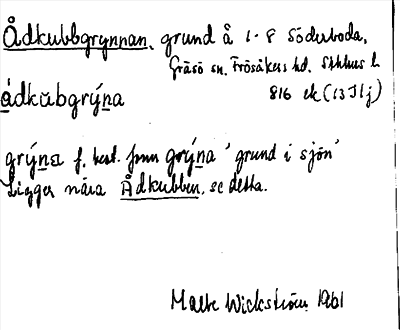 Ådkubbgrynnan, grund å 1-8 Söderboda,
Gräsö sn. Frösåkers hd. Sthlms l.
816 ek (13I 1j)
ådkŭbgrýna
grýna f. best. form grýna 'grund i sjön'
Ligger nära Ådkubben, se detta.
Malte Wickström 1961